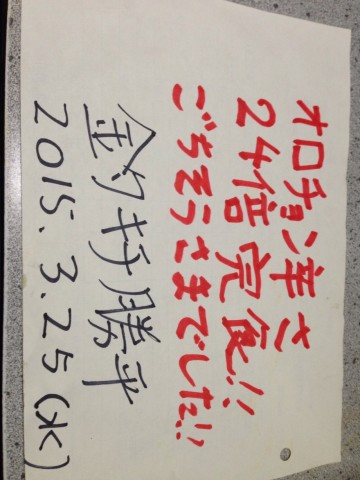 オロチョン辛さ
24倍 完食!!
ごちそうさまでした!!
勝平
2015. 3. 25 (水)